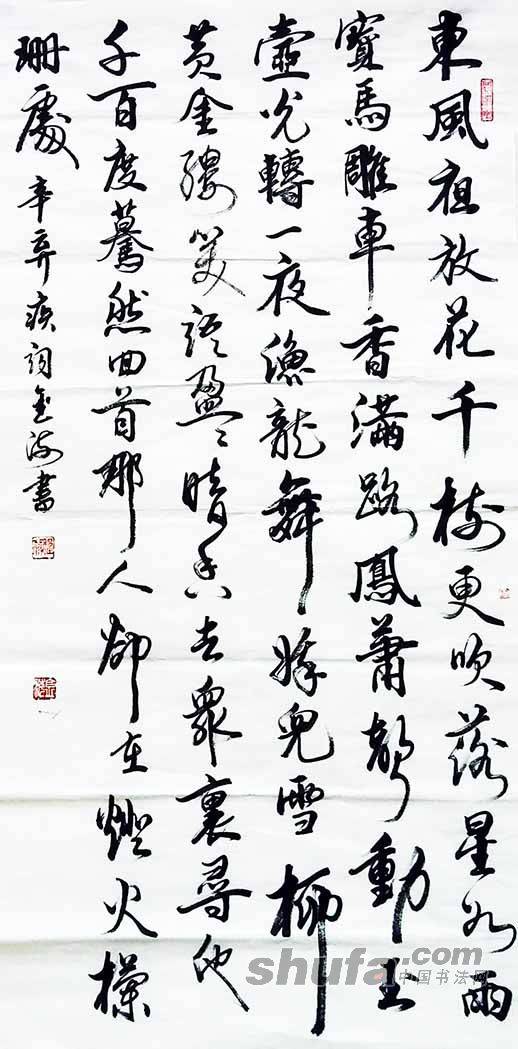 東風祖放花千樹更吹落星如雨
寶馬雕車香滿路鳳蕭聲動玉
壺光轉一夜漁龍舞蛾兒雪柳
黃金縷笑語盈〻暗香去衆裏尋他
千百度驀然回首那人卻在燈火欄
珊處 辛弃疾詞金海書
shufa.com
中国书法网